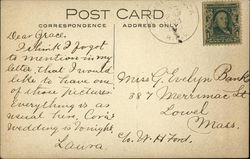 POST CARD
CORRESPONDENCE
ADDRESS ONLY
Dear Grace.
I think I forgot
to mention in my
letter, that I would
like to have one
of those pictures.
Everything is as
usual here. Cora's
wedding is tonight
Laura
Miss G. Evelyn Bank
387 Merrimac St
Lowel
Mass.
c/o W. H. Ford.